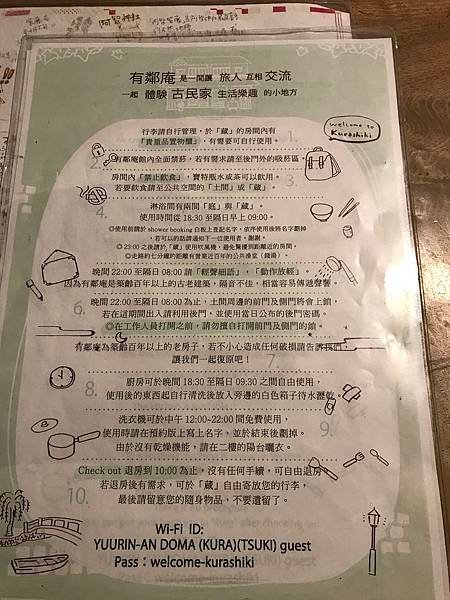 阿智神社
有鄰庵 是一間讓 旅人 互相 交流
一起 體驗 古民家 生活樂趣 的小地方
welcome to
Kurashiki
1.
行李請自行管理,於「藏」的房間內有
「貴重品置物櫃」,有需要可自行使用。
2.
有鄰庵館內全面禁菸,若有需求請至後門外的吸菸區。
3.
房間內「禁止飲食」,寶特瓶水或茶可以飲用。
若要飲食請至公共空間的「土間」或「藏」。
4.
淋浴間有兩間「庭」與「藏」。
使用時間從 18:30 至隔日早上 09:00。
◎使用前請於 shower booking 白板上登記名字,依序使用後將名字劃掉
若可以的話請通知下一位使用者。謝謝。
◎ 23:00 之後請於「藏」使用吹風機,避免驚擾到距離近的房間。
◎走路約七分鐘的距離有營業近百年的公共澡堂(錢湯)
晚間 22:00 至隔日 08:00 請「輕聲細語」,「動作放輕」
因為有鄰庵是築齡百年以上的古老建築,隔音不佳,相當容易傳遞聲響。
6.
晚間 22:00 至隔日 08:00 為止,土間周邊的前門及側門將會上鎖
若在這期間出入請利用後門,並使用當日公布的後門密碼。
◎在工作人員打開之前,請勿擅自打開前門及側門的鎖。
7.
有鄰庵為築齡百年以上的老房子,若不小心造成任何破損請告訴我們,
讓我們一起復原吧!
8.
廚房可於晚間 18:30 至隔日 09:30 之間自由使用,
使用後的東西起自行清洗後放入旁邊的白色箱子待水瀝乾。
9.
洗衣機可於中午 12:00~22:00 間免費使用,
使用時請在預約版上寫上名字,並於結束後劃掉。
由於沒有乾燥機能,請在二樓的陽台曬衣。
10.
Check out 退房到 10:00 為止,沒有任何手續,可自由退房
若退房後有需求,可於「藏」自由寄放您的行李,
最後請留意您的隨身物品,不要遺留了。
Wi-Fi ID:
YUURIN-AN DOMA (KURA)(TSUKI) guest
Pass:welcome-kurashiki